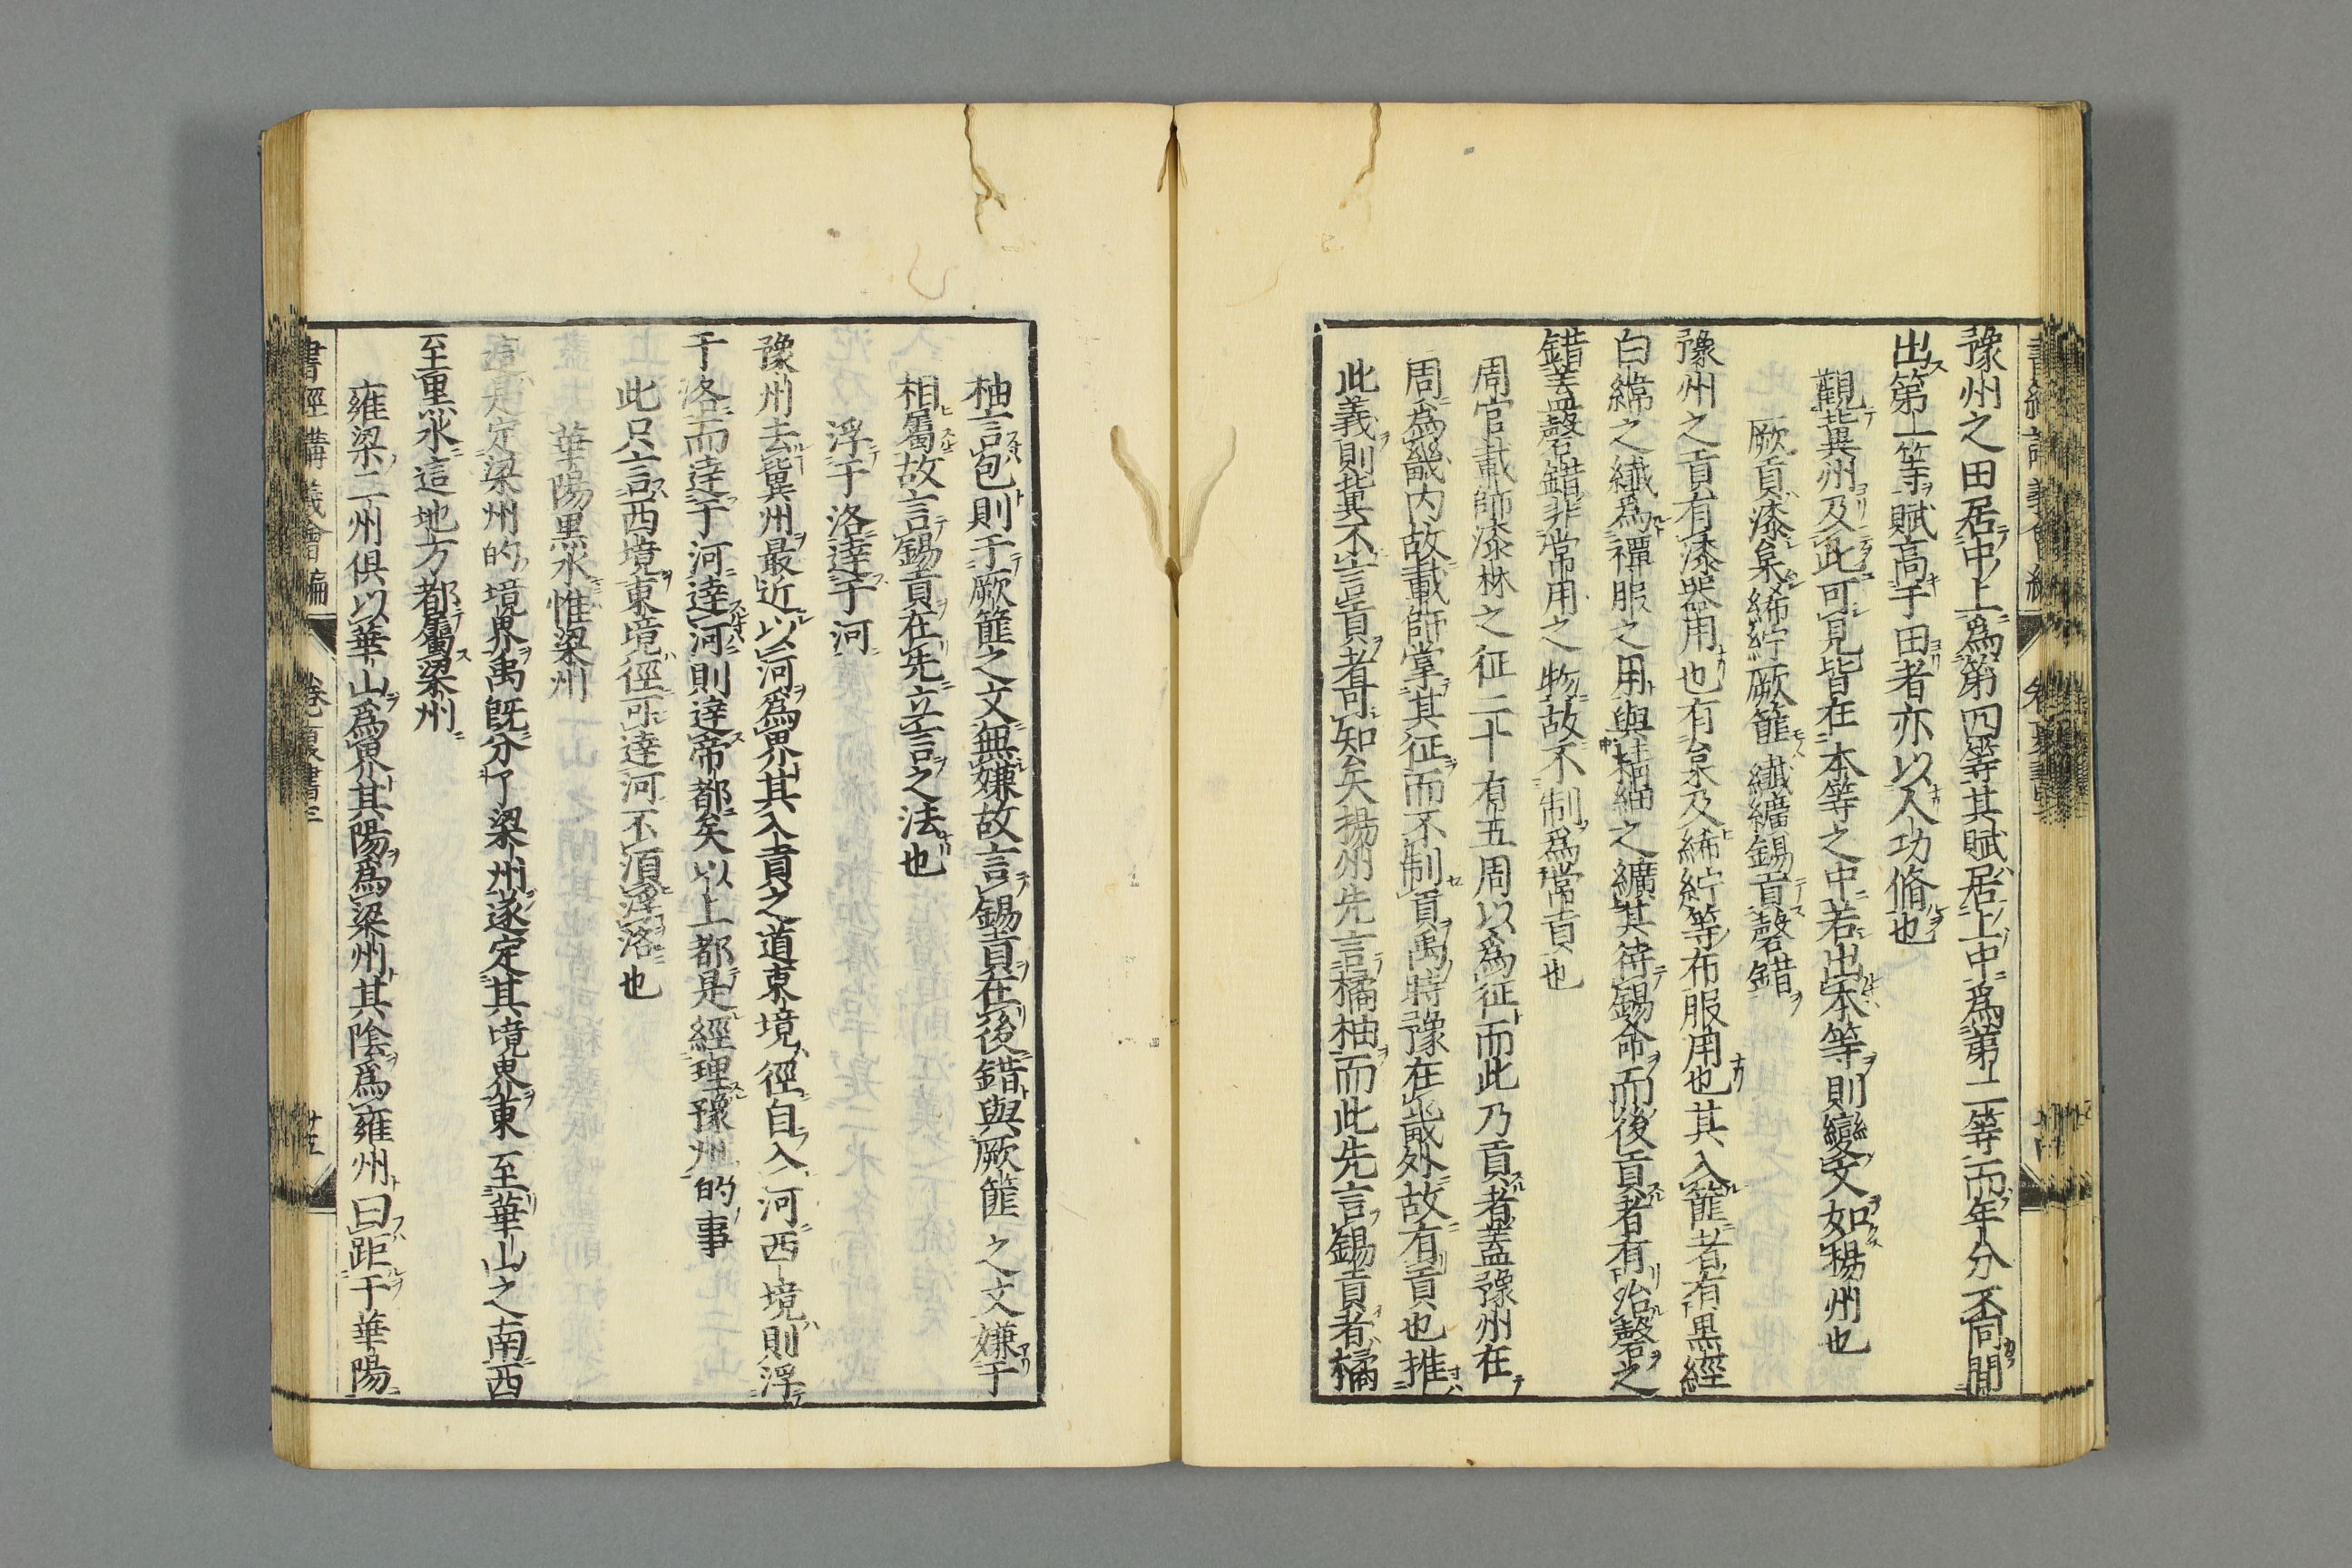 豫州之田居中上爲第四等其賦居上中爲第二等而年分不同間
出第上等賦高于田者亦以人功脩也
觀冀州及此可見皆在本等之中若出本等則變文如揚州也
厥貢漆枲絺紵厥篚纖纊錫貢磬錯
豫州之貢有漆器用也有枲及絺紵等布服用也其入篚者有黒經
白緯之纖爲禫服之用與精細之纊其待錫命而後貢者有治磬之
錯蓋磬錯非常用之物故不制爲常貢也
周官載師漆林之征二十有五周以爲征而此乃貢者蓋豫州在
周爲畿内故載師掌其征而不制貢禹時豫在畿外故有貢也推
此義則冀不言貢者可知矣揚州先言橘柚而此先言錫貢者橘
柚言包則于厥篚之文無嫌故言錫貢在後錯與厥篚之文嫌于
相屬故言錫貢在先立言之法也
浮于洛達于河
豫州去冀州最近以河爲界其入貢之道東境徑自入河西境則浮
于洛而達于河達河則達帝都矣以上都是經理豫州的事
此只言西境東境徑可達河不須浮洛也
華陽黒水惟梁州
這是定梁州的境界禹既分了梁州遂定其境界東至華山之南西
至黒水這地方都屬梁州
雍梁二州俱以華山爲界其陽爲梁州其陰爲雍州曰距于華陽
書經講義會編 卷三夏書三 廿五